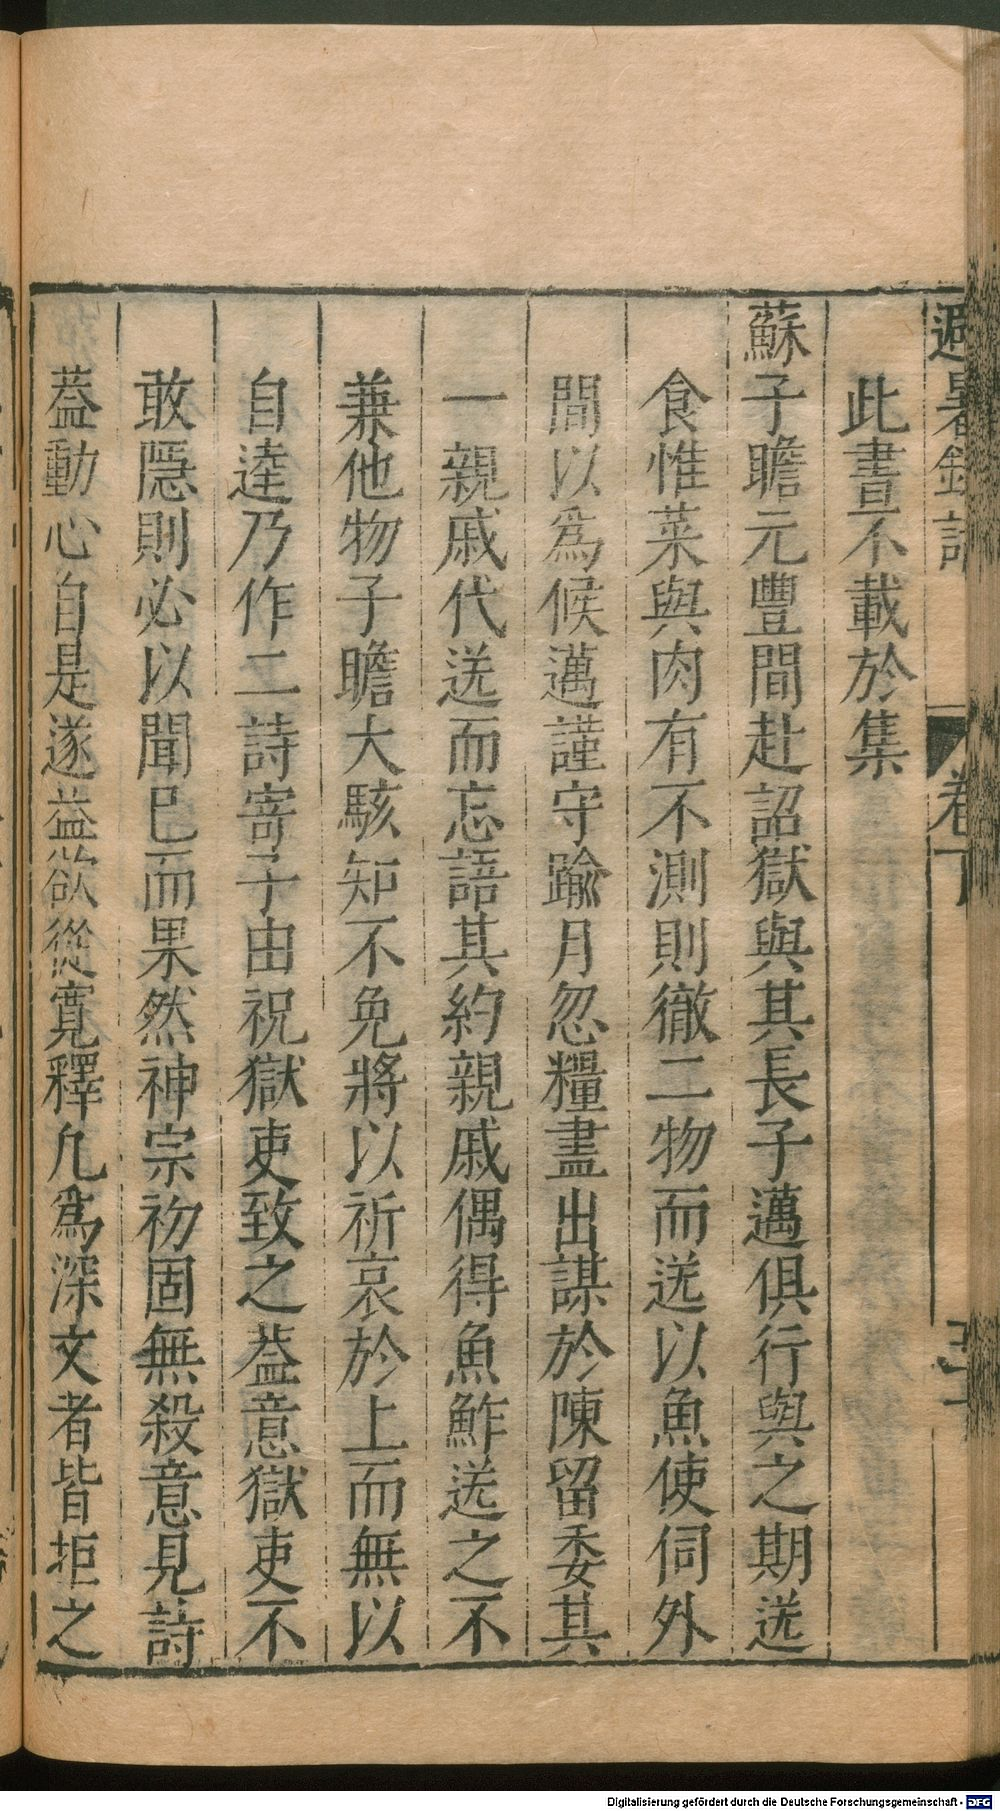 避暑録話 卷下
此書不載於集
蘇子瞻元豐間赴詔獄與其長子邁俱行與之期送
食惟菜與肉有不測則徹二物而送以魚使伺外
間以爲候邁謹守踰月忽糧盡出謀於陳留委其
一親戚代送而忘語其約親戚偶得魚鮓送之不
兼他物子瞻大駭知不免將以祈哀於上而無以
自達乃作二詩寄子由祝獄吏致之葢意獄吏不
敢隠則必以聞已而果然神宗初固無殺意見詩
葢動心自是遂益欲從寬釋凢爲深文者皆拒之
Digitalisierung gefördert durch die Deutsche Forschungsgemeinschaft - DFG